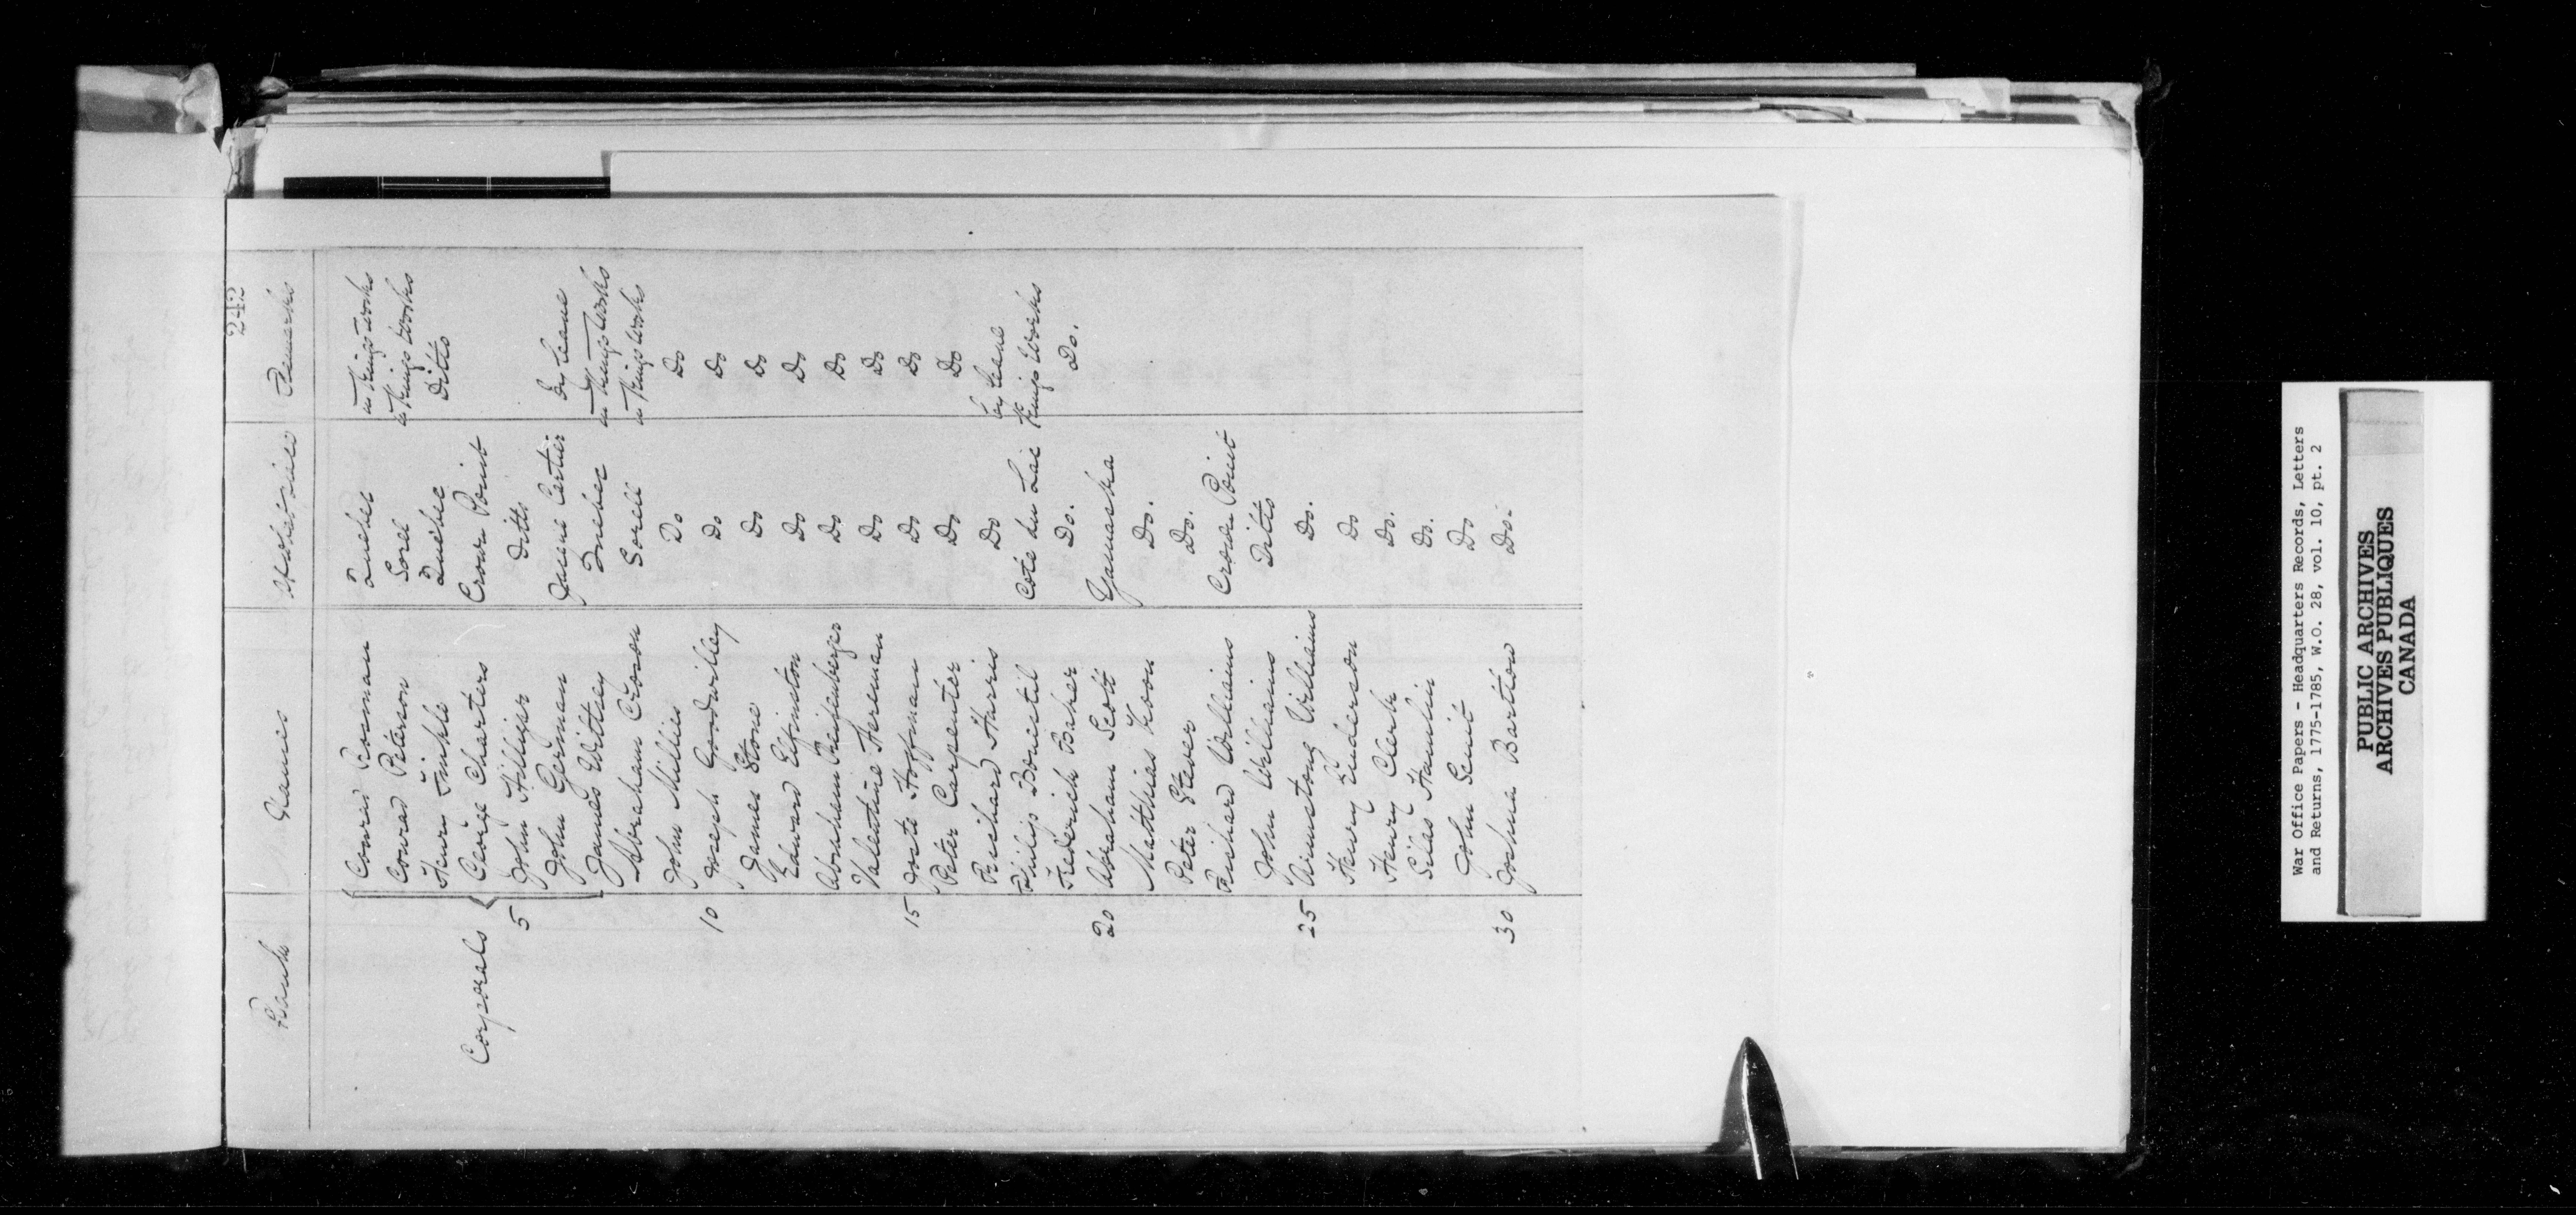 242
Rank Names Remarks
Conrad Rosman Quebec in Kings Works
Conrad Peterson Sorel in Kings Works
Henry Quebec Ditto
George Charters Crown Point
Corporals
5 John Hilliger Ditto
John German Jacque Cartier By Leave
James Wittsey Quebec in Kings Works
Abraham Croson Sorell in Kings Works
John Millies Do Do
10 Joseph Goodwilley Do Do
James Stone Do Do
Edward Elfinston Do Do
Abraham Do Do
Valentine Do Do
15 Joste Hoffman Do Do
Peter Carpenter Do Do
Richard Harris Do by Leave
Philip Bonestil Cote du Lac Kings Works
Frederick Baker Do. Do.
20 Abraham Scott Yamaska
Matthias Koon Do.
Peter Stever Do.
Richard Williams Crown Point
John Williams Ditto
25 Armstong Williams Do.
Henry Do
Henry Clerk Do.
Silas Hamlin Do.
John Do
30 Joshua Bartow Do.
War Office Papers - Headquarters Records, Letters
and Returns, 1775-1785, W.O. 28, vol. 10, pt. 2
PUBLIC ARCHIVES
ARCHIVES PUBLIQUES
CANADA